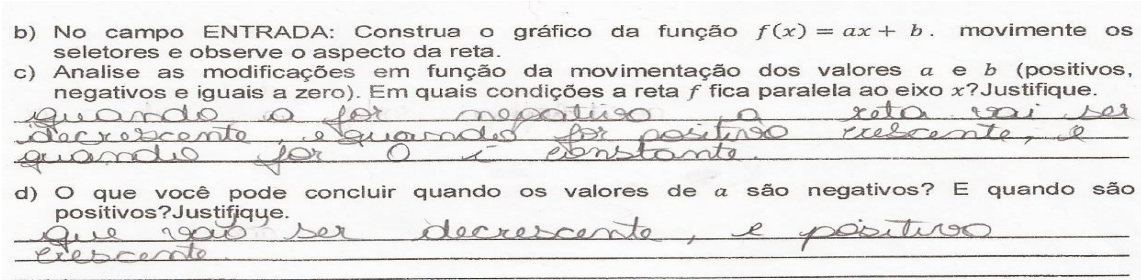 b) No campo ENTRADA: Construa o gráfico da função f(x) = ax + b. movimente os
seletores e observe o aspecto da reta.
c) Analise as modificações em função da movimentação dos valores a e b (positivos,
negativos e iguais a zero). Em quais condições a reta f fica paralela ao eixo x?Justifique.
quando a for negativo a reta vai ser
decrescente, e quando for positivo crescente, e
quando for 0 é constante.
d) O que você pode concluir quando os valores de a são negativos? E quando são
positivos?Justifique.
que vão ser decrescente, e positivo
crescente.